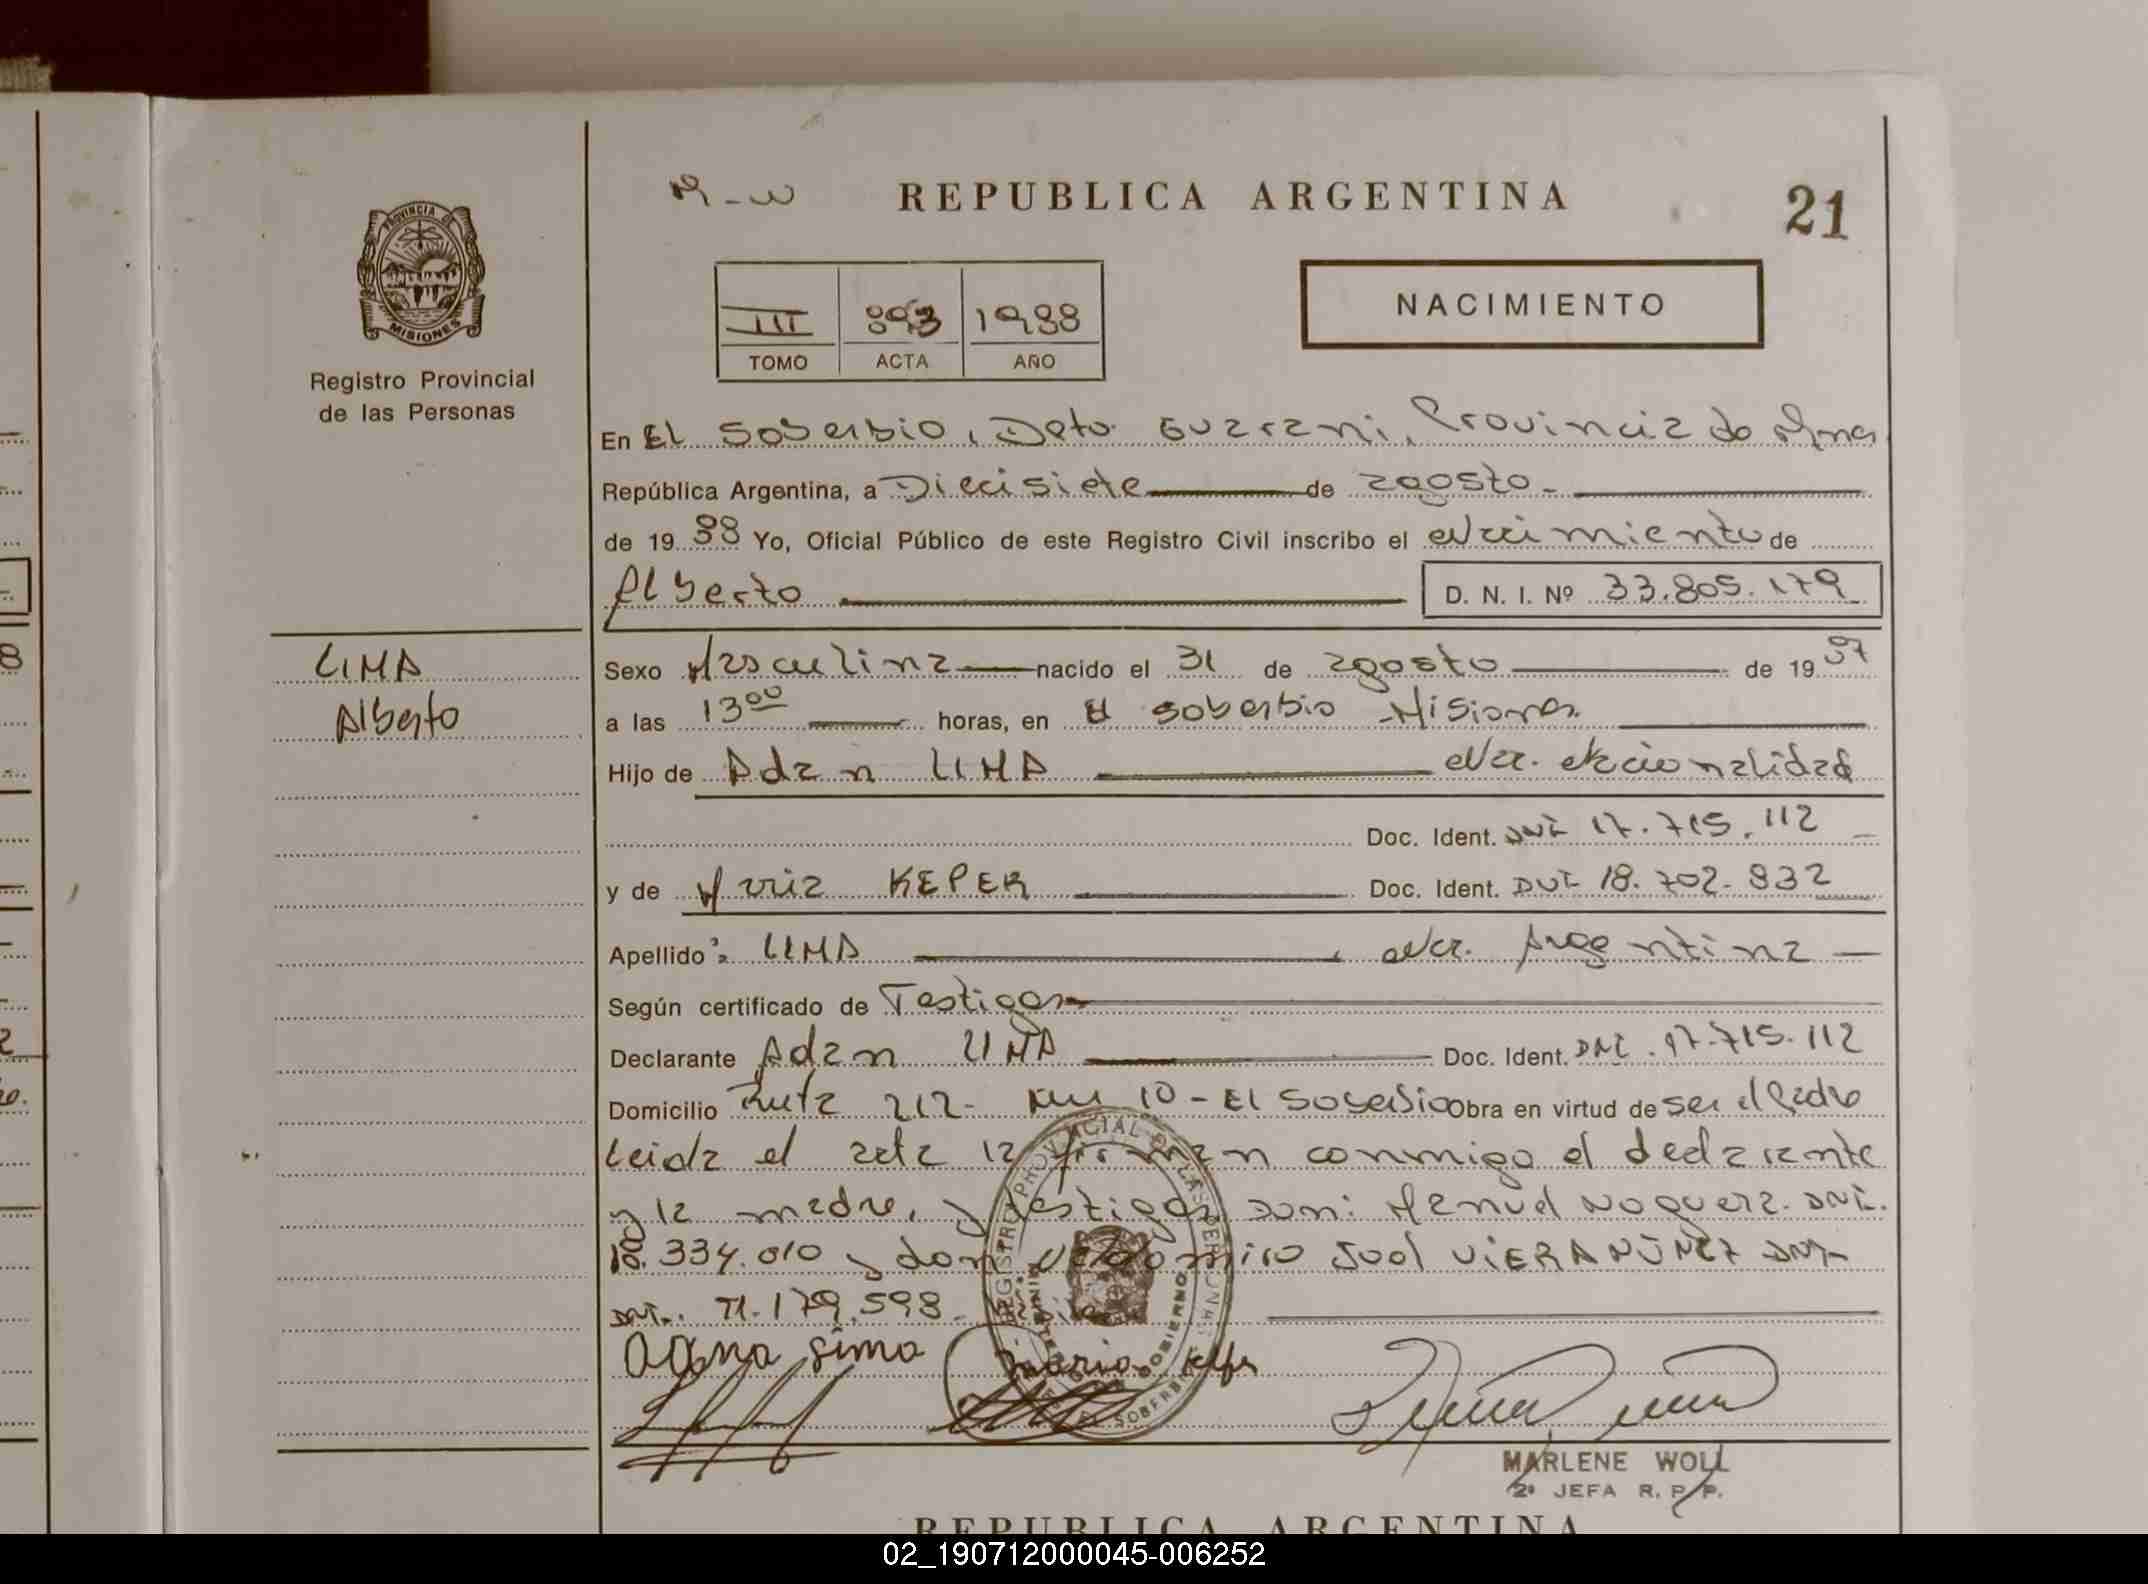 REPUBLICA ARGENTINA
21
PROVINCIA DE
MISIONES
Registro Provincial
de las Personas
III 893 1988
TOMO ACTA AÑO
NACIMIENTO
En El Soberbio, Dpto. Guarani, Provincia de Mnes
República Argentina, a Diecisiete de agosto
de 19 88 Yo, Oficial Público de este Registro Civil inscribo el Nacimiento de
Alberto D. N. I. Nº 33.805.179
LIMA
Alberto
Sexo Masculino nacido el 31 de agosto de 19 87
a las 13 00 horas, en El Soberbio Misiones
Hijo de Adan LIMA Nac. Nacionalidad
Doc. Ident. DNI 17.715.112
y de Maria KEPER Doc. Ident. DNI 18.702.832
Apellido: LIMA, Nac. Argentina
Según certificado de Testigos
Declarante Adan LIMA Doc. Ident. DNI. 17.715.112
Domicilio Ruta 212 - Km 10 - El Soberbio Obra en virtud de ser el Padre
Leida el acta la firman conmigo el declarante
y la madre, y testigos Don: Manuel Noguera. DNI.
18.334.010 y don Joel VIERA NUNEZ DNI
DNI. 11.179.598
REGISTRO PROVINCIAL DE LAS PERSONAS
EL SOBERBIO
MARLENE WOLL
2º JEFA R. P. P.
REPUBLICA ARGENTINA
02_190712000045-006252